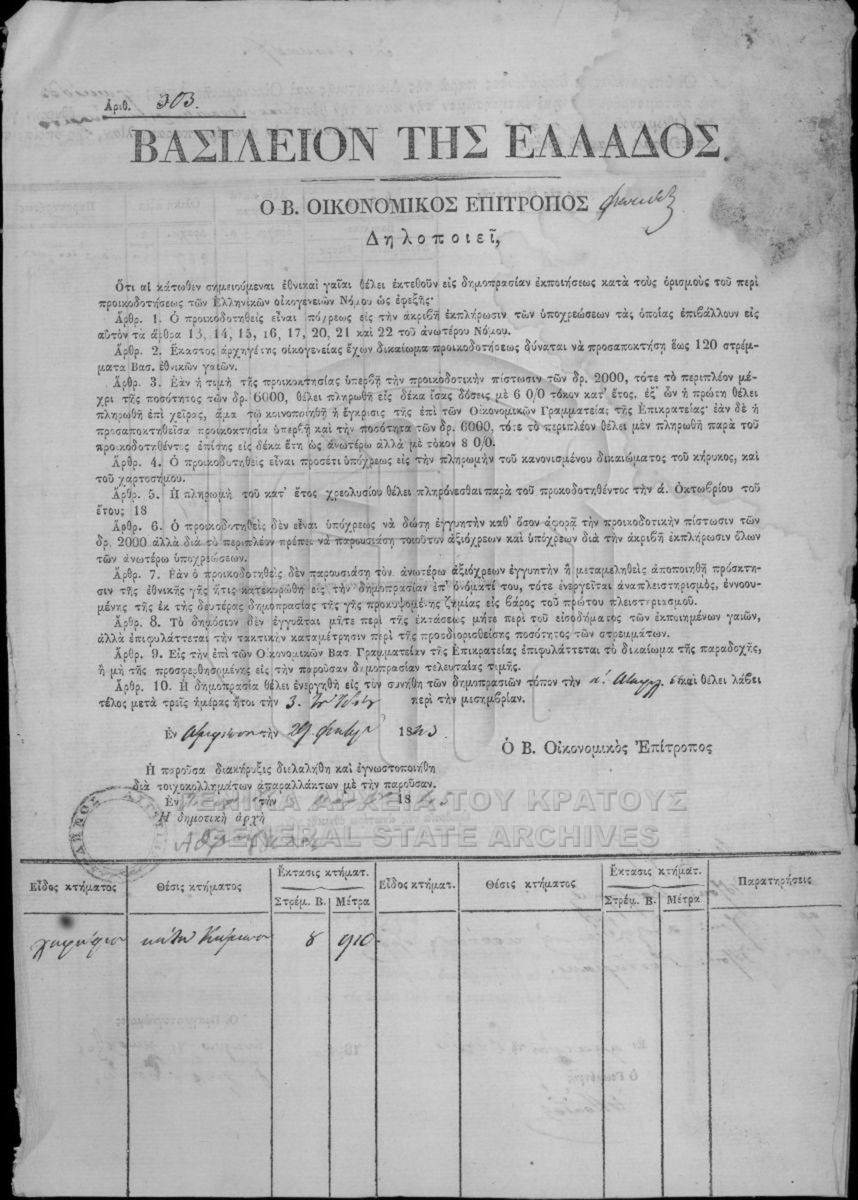 Ἀριθ. 303.
ΒΑΣΙΛΕΙΟΝ ΤΗΣ ΕΛΛΑΔΟΣ.
Ο Β. ΟΙΚΟΝΟΜΙΚΟΣ ΕΠΙΤΡΟΠΟΣ
Δηλοποιεῖ,
Ὅτι αἱ κάτωθεν σημειούμεναι ἐθνικαὶ γαῖαι θέλει ἐκτεθοῦν εἰς δημοπρασίαν ἐκποιήσεως κατὰ τοὺς ὁρισμοὺς τοῦ περὶ
προικοδοτήσεως τῶν Ἑλληνικῶν οἰκογενειῶν Νόμου ὡς ἐφεξῆς·
Ἄρθρ. 1. Ὁ προικοδοτηθεὶς εἶναι ὑπόχρεως εἰς τὴν ἀκριβῆ ἐκπλήρωσιν τῶν ὑποχρεώσεων τὰς ὁποίας ἐπιβάλλουν εἰς
αὐτὸν τὰ ἄρθρα 13, 14, 15, 16, 17, 20, 21 καὶ 22 τοῦ ἀνωτέρου Νόμου.
Ἄρθρ. 2. Ἕκαστος ἀρχηγέτης οἰκογενείας ἔχων δικαίωμα προικοδοτήσεως δύναται νὰ προσαποκτήσῃ ἕως 120 στρέμ-
ματα Βασ. ἐθνικῶν γαιῶν.
Ἄρθρ. 3. Ἐὰν ἡ τιμὴ τῆς προικοκτησίας ὑπερβῇ τὴν προικοδοτικὴν πίστωσιν τῶν δρ. 2000, τότε τὸ περιπλέον μέ-
χρι τῆς ποσότητος τῶν δρ. 6000, θέλει πληρωθῆ εἰς δέκα ἴσας δόσεις μὲ 6 0/0 τόκον κατ' ἔτος, ἐξ' ὧν ἡ πρώτη θέλει
πληρωθῆ ἐπὶ χεῖρας, ἅμα τῷ κοινοποιηθῇ ἡ ἔγκρισις τῆς ἐπὶ τῶν Οἰκονομικῶν Γραμματείας τῆς Ἐπικρατείας· ἐὰν δὲ ἡ
προσαποκτηθεῖσα προικοκτησία ὑπερβῇ καὶ τὴν ποσότητα τῶν δρ. 6000, τότε τὸ περιπλέον θέλει μὲν πληρωθῆ παρὰ τοῦ
προικοδοτηθέντος ἐπίσης εἰς δέκα ἔτη ὡς ἀνωτέρω ἀλλὰ μὲ τόκον 8 0/0.
Ἄρθρ. 4. Ὁ προικοδοτηθεὶς εἶναι προσέτι ὑπόχρεως εἰς τὴν πληρωμὴν τοῦ κανονισμένου δικαιώματος τοῦ κήρυκος, καὶ
τοῦ χαρτοσήμου.
Ἄρθρ. 5. Ἡ πληρωμὴ τοῦ κατ' ἔτος χρεολυσίου θέλει πληρόνεσθαι παρὰ τοῦ προκοδοτηθέντος τὴν ά. Ὀκτωβρίου τοῦ
ἔτους 18
Ἄρθρ. 6. Ὁ προικοδοτηθεὶς δὲν εἶναι ὑπόχρεως νὰ δώσῃ ἐγγυητὴν καθ' ὅσον ἀφορᾷ τὴν προικοδοτικὴν πίστωσιν τῶν
δρ. 2000 ἀλλὰ διὰ τὸ περιπλέον πρέπει νὰ παρουσιάσῃ τοιοῦτον ἀξιόχρεων καὶ ὑπόχρεων διὰ τὴν ἀκριβῆ ἐκπλήρωσιν ὅλων
τῶν ἀνωτέρω ὑποχρεώσεων.
Ἄρθρ. 7. Ἐὰν ὁ προικοδοτηθεὶς δὲν παρουσιάσῃ τὸν ἀνωτέρω ἀξιόχρεων ἐγγυητὴν ἢ μεταμεληθεὶς ἀποποιηθῇ πρόσκτη-
σιν τῆς ἐθνικῆς γῆς ἥτις κατεκυρώθη εἰς τὴν δημοπρασίαν ἐπ' ὀνόματί του, τότε ἐνεργεῖται ἀναπλειστηριασμὸς, ἐννοου-
μένης τῆς ἐκ τῆς δευτέρας δημοπρασίας τῆς γῆς προκυψομένης ζημίας εἰς βάρος τοῦ πρώτου πλειστηριασμοῦ.
Ἄρθρ. 8. Τὸ δημόσιον δὲν ἐγγυᾶται μήτε περὶ τῆς ἐκτάσεως μήτε περὶ τοῦ εἰσοδήματος τῶν ἐκποιημένων γαιῶν,
ἀλλὰ ἐπιφυλάττεται τὴν τακτικὴν καταμέτρησιν περὶ τῆς προσδιορισθείσης ποσότητος τῶν στρεμμάτων.
Ἄρθρ. 9. Εἰς τὴν ἐπὶ τῶν Οἰκονομικῶν Βασ. Γραμματείαν τῆς Ἐπικρατείας ἐπιφυλάττεται τὸ δικαίωμα τῆς παραδοχῆς,
ἢ μὴ τῆς προσφερθησομένης εἰς τὴν παροῦσαν δημοπρασίαν τελευταίας τιμῆς.
Ἄρθρ. 10. Ἡ δημοπρασία θέλει ἐνεργηθῆ εἰς τὸν συνήθη τῶν δημοπρασιῶν τόπον τὴν καὶ θέλει λάβει
τέλος μετὰ τρεῖς ἡμέρας ἤτοι τὴν 3. περὶ τὴν μεσημβρίαν.
Ἐν τὴν 29 1843
Ὁ Β. Οἰκονομικὸς Ἐπίτροπος
Ἡ παροῦσα διακήρυξις διελαλήθη καὶ ἐγνωστοποιήθη
διὰ τοιχοκολλημάτων ἀπαραλλάκτων μὲ τὴν παροῦσαν.
Ἐν τὴν 18
Ἡ δημοτικὴ ἀρχὴ
ΓΕΝΙΚΑ ΑΡΧΕΙΑ ΤΟΥ ΚΡΑΤΟΥΣ
GENERAL STATE ARCHIVES
ΔΗΜΟΣ
Εἶδος κτήματος Θέσις κτήματος Ἔκτασις κτήματ. Εἶδος κτήματ. Θέσις κτήματος Ἔκτασις κτήματ. Παρατηρήσεις
Στρέμ. Β. Μέτρα Στρέμ. Β. Μέτρα
χωράφιον κάτω 8 910